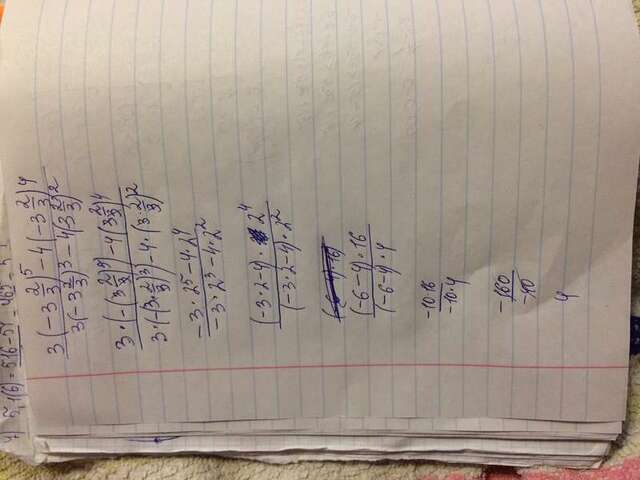 4) 5,1(6) = 516-51 = 465 = 5
3(-3 2/3)^5 - 4(-3 2/3)^4
3(-3 2/3)^3 - 4(3 2/3)^2
3·(-(3 2/3)^5) - 4(3 2/3)^4
3·(-(3·2/3)^3) - 4·(3·2/3)^2
-3·2^5 - 4·2^4
-3·2^3 - 4·2^2
(-3·2-4)· 2^4
(-3·2-4)·2^2
(-6-4)·16
(-6-4)·16
(-6-4)·4
-10·16
-10·4
-160
-40
4